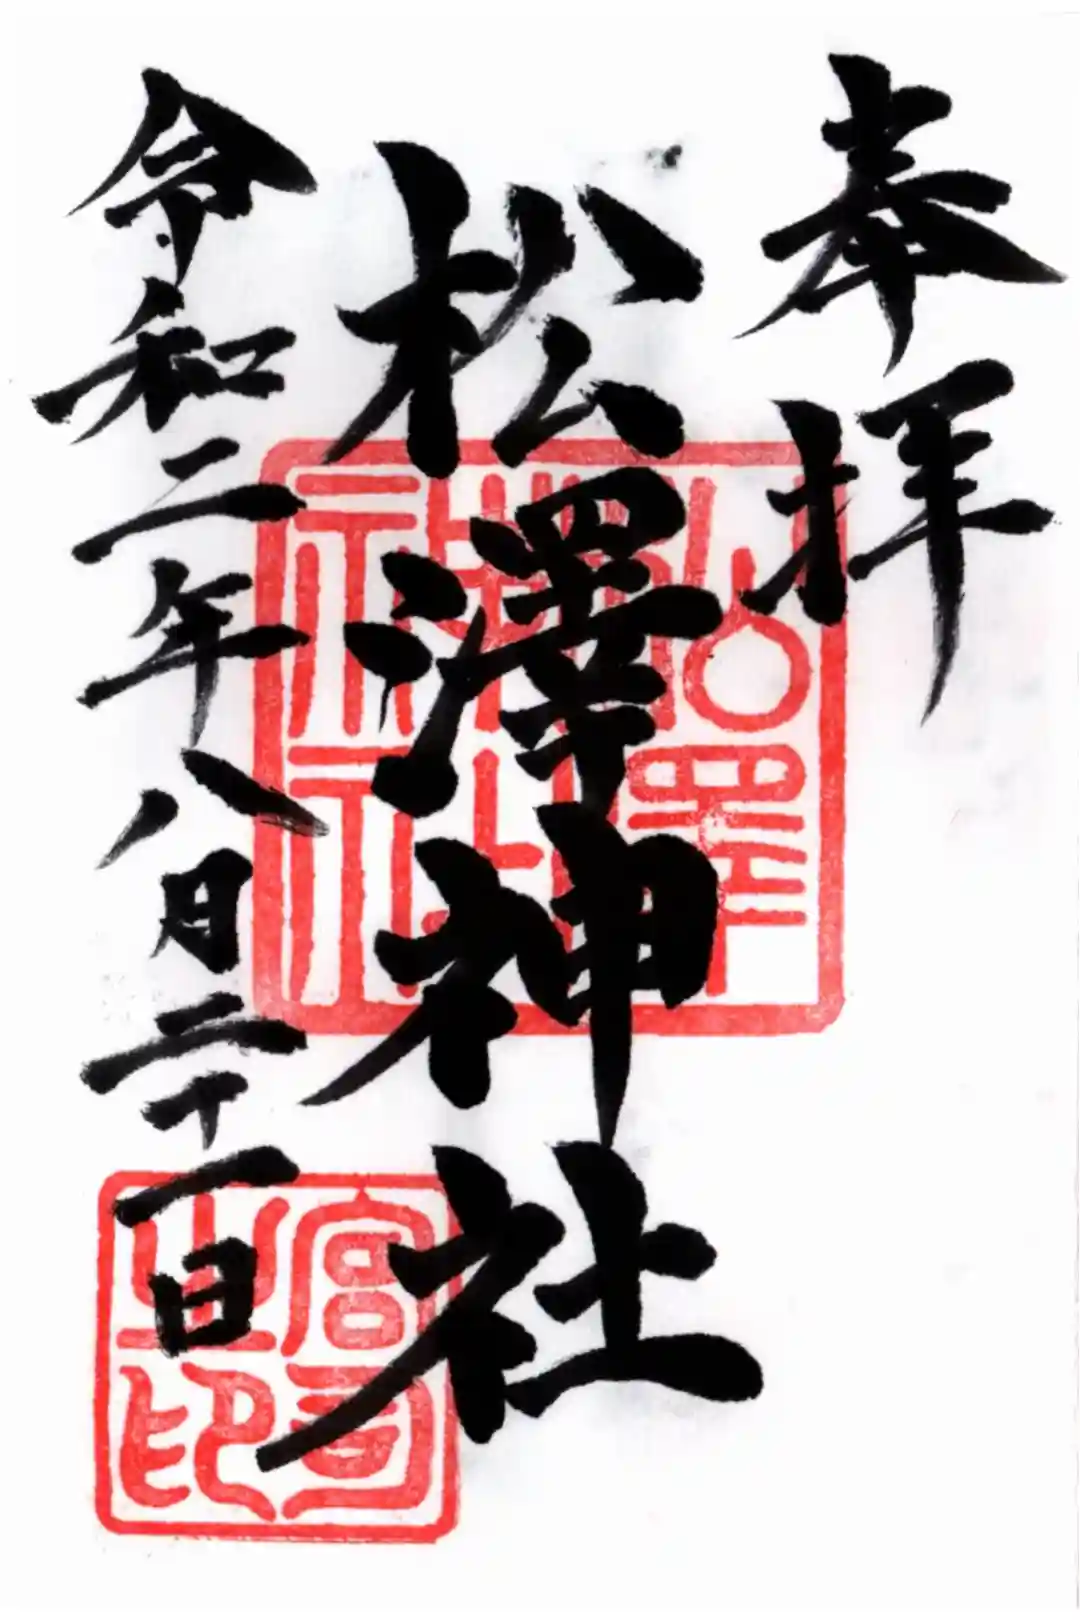 奉拝
松澤神社
令和二年八月二十一日
松澤
神社
宮司
之印